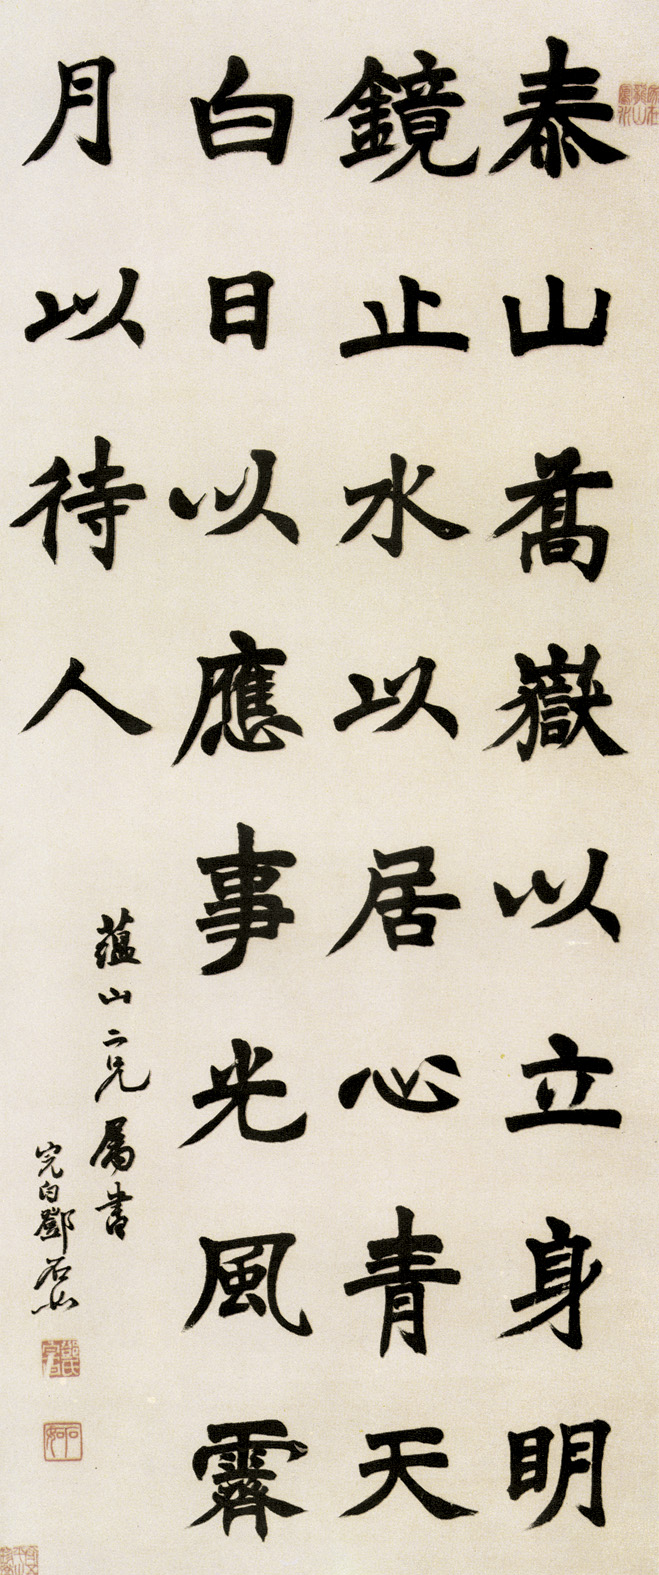 泰山喬嶽以立身明
鏡止水以居心青天
白日以應事光風霽
月以待人
蘊山二兄屬書
完白鄧石如
鄧氏完白
石如